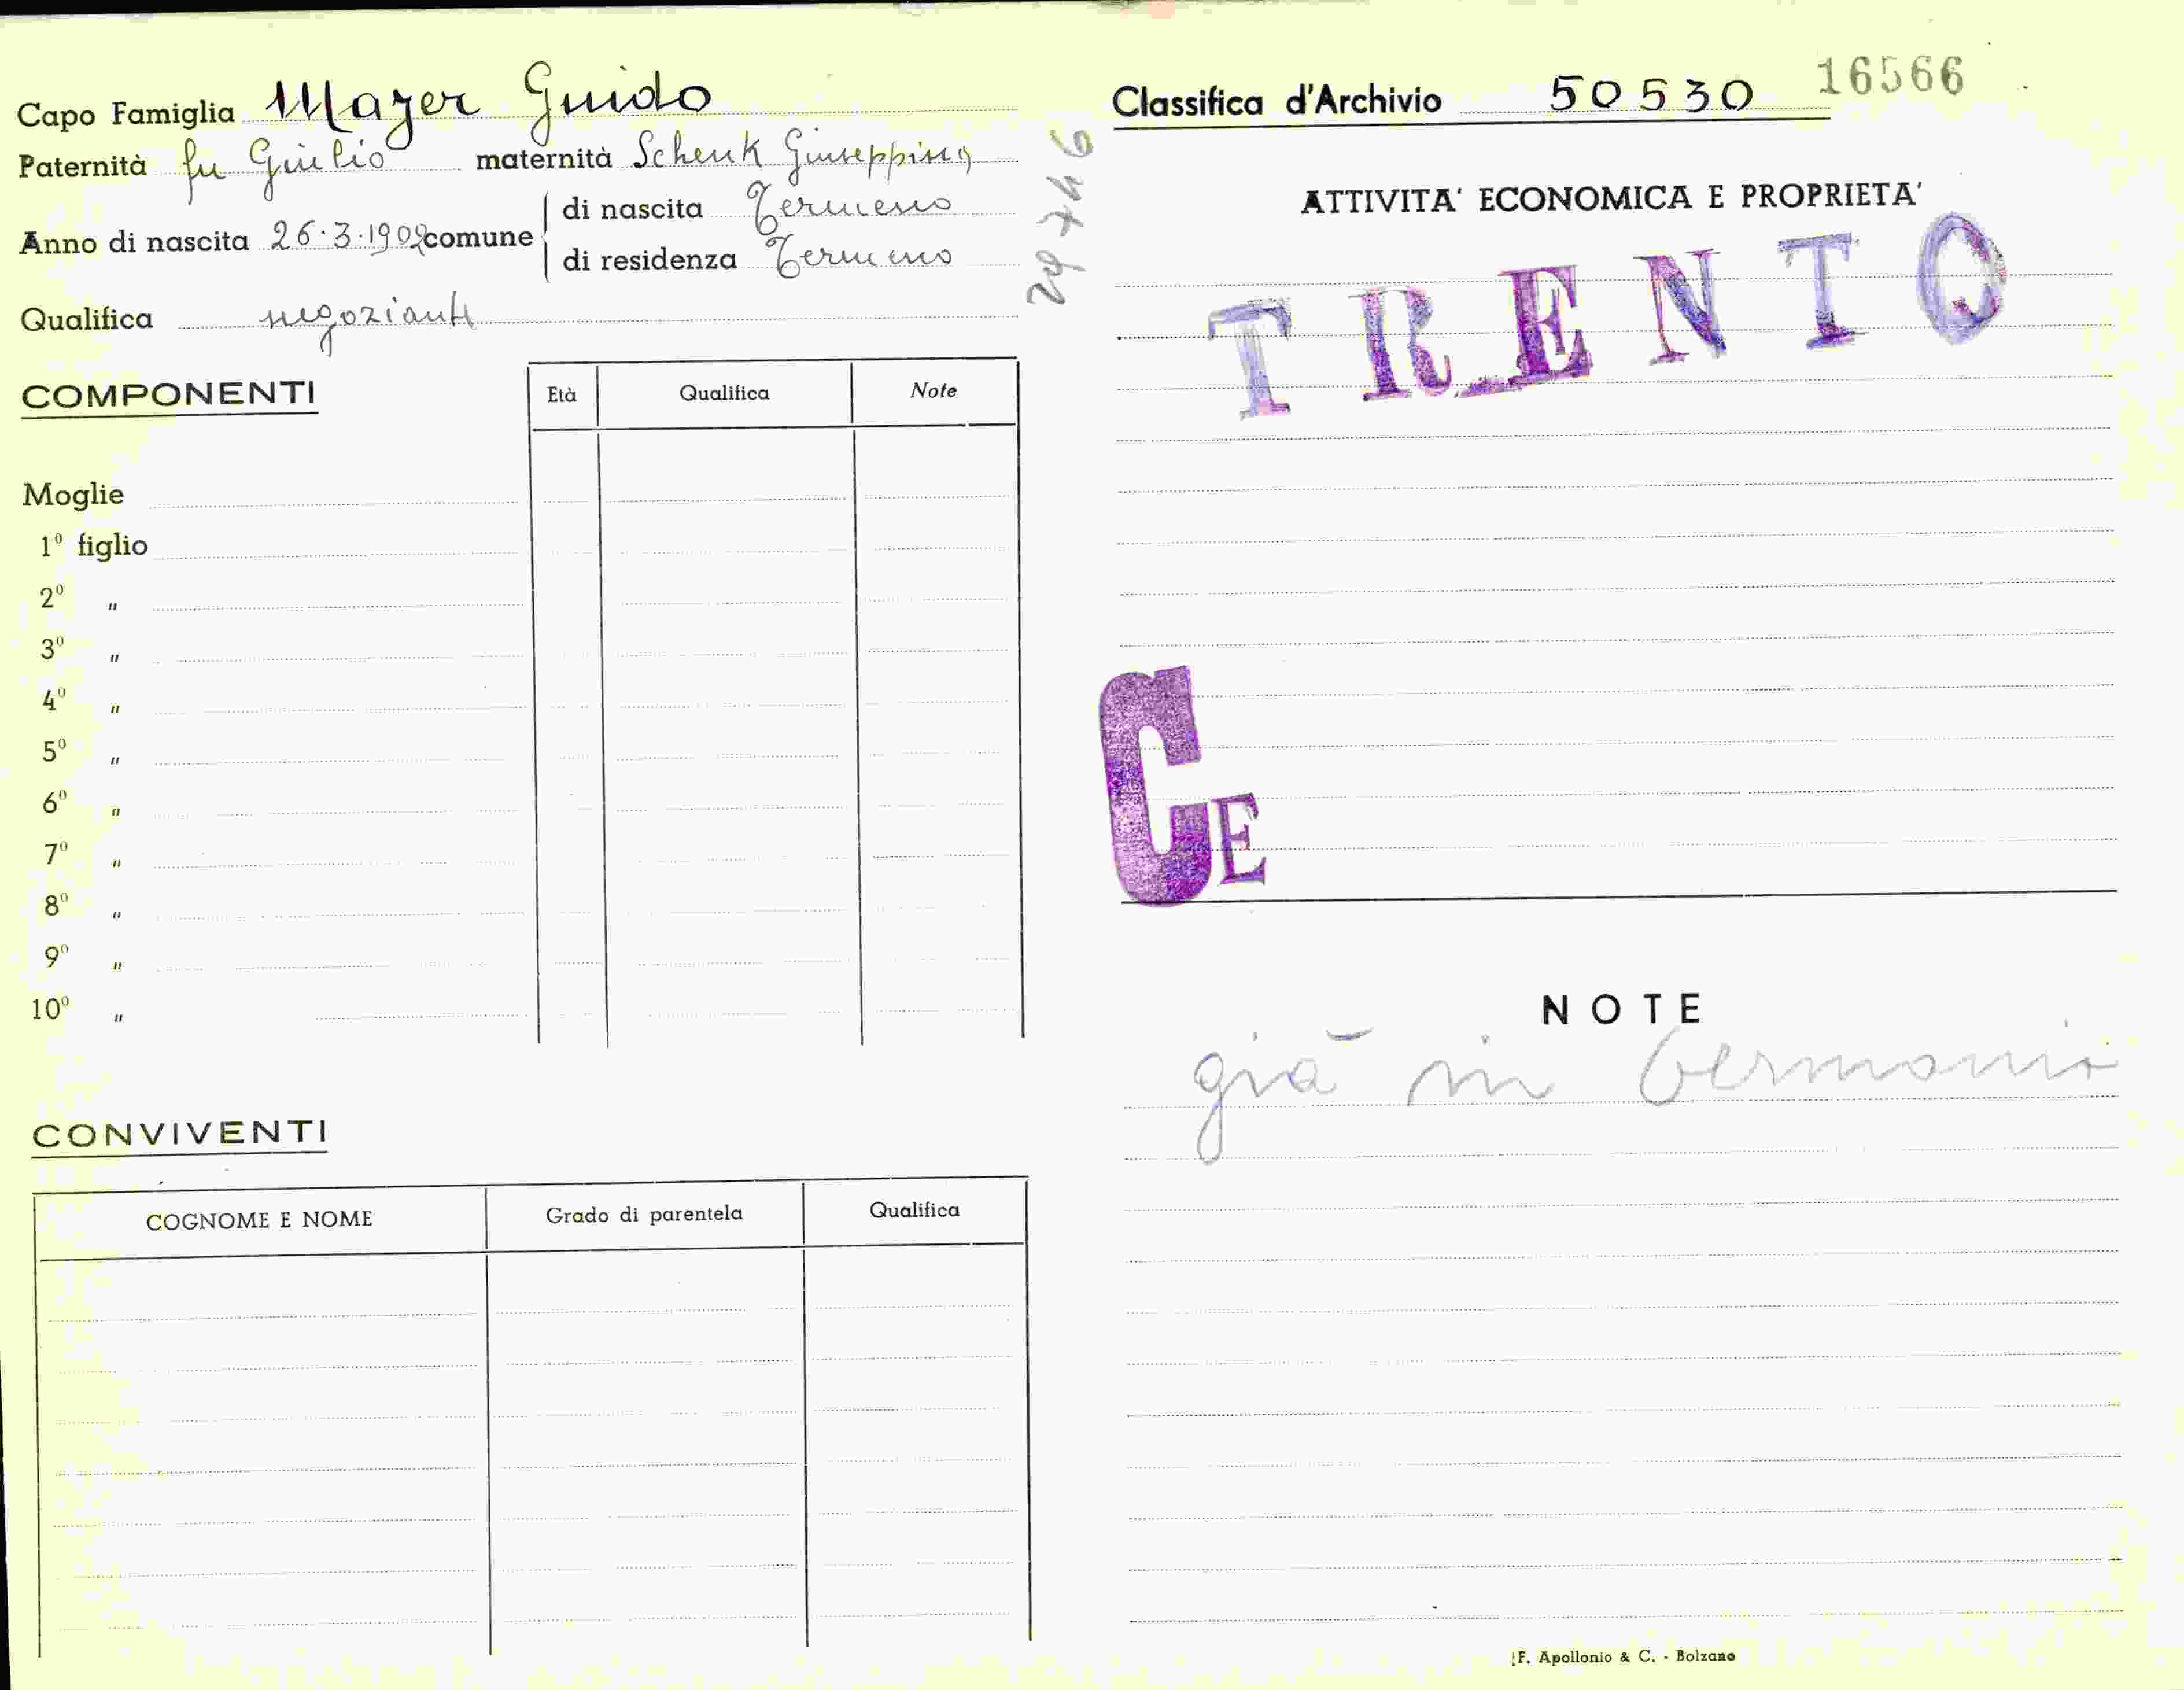 Capo Famiglia Mayer Guido
Paternità fu Giulio maternità Schenk Giuseppina
Anno di nascita 26.3.1902 comune di nascita Termeno
di residenza Termeno
Qualifica negoziante
COMPONENTI
Età Qualifica Note
Moglie
1º figlio
2º "
3º "
4º "
5º "
6º "
7º "
8º "
9º "
10º "
CONVIVENTI
COGNOME E NOME Grado di parentela Qualifica
Classifica d'Archivio 50530 16566
ATTIVITA' ECONOMICA E PROPRIETA'
TRENTO
CE
NOTE
già in Germania
F. Apollonio & C. - Bolzano